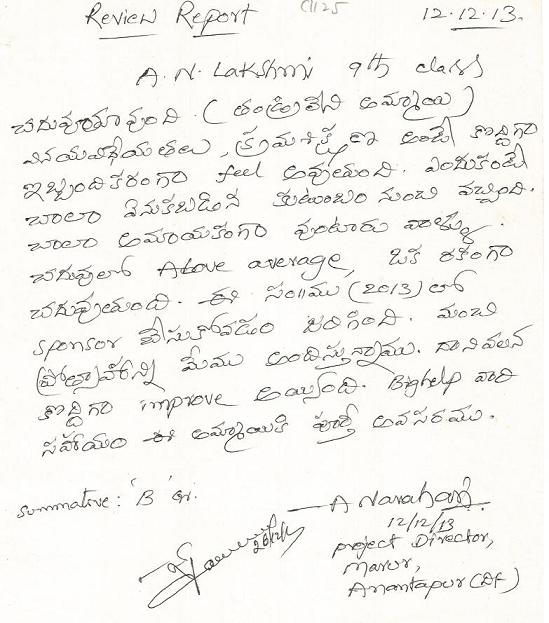 Review Report C1125 12.12.13.
A.N. Lakshmi 9th class
చదువుతూ వుంది. (తండ్రి లేని అమ్మాయి)
వినయవిధేయతలు, క్రమశిక్షణ అంటే కొద్దిగా
ఇబ్బందికరంగా feel అవుతుంది. ఎందుకంటే
చాలా వెనుకబడిన కుటుంబం నుంచి వచ్చింది.
చాలా అమాయకంగా వుంటారు వాళ్ళు.
చదువులో Above average, ఒక రకంగా
చదువుతుంది. ఈ సం॥ము (2013) లో
sponsor చేసుకోవడం జరిగింది. మంచి
ప్రోత్సాహాన్ని మేము అందిస్తున్నాము. దానివలన
కొద్దిగా improve అయ్యింది. Bighelp వారి
సహాయం ఈ అమ్మాయికి పూర్తి అవసరము.
summative: 'B' Gr.
A Narahari.
12/12/13
project Director,
Marur,
Anantapur (Dt)